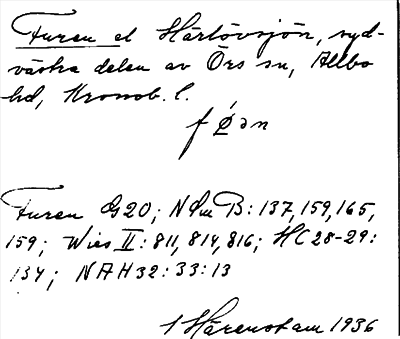 Furen el Härlövsjön, syd-
västra delen av Örs sn, Allbo
hd, Kronob. l.
f Ø ə n
Furen G20; NSm B: 137, 159, 165,
159; Wies II: 811, 814, 816; HC 28-29:
134; NAH 32: 33: 13
1 Härenstam 1936